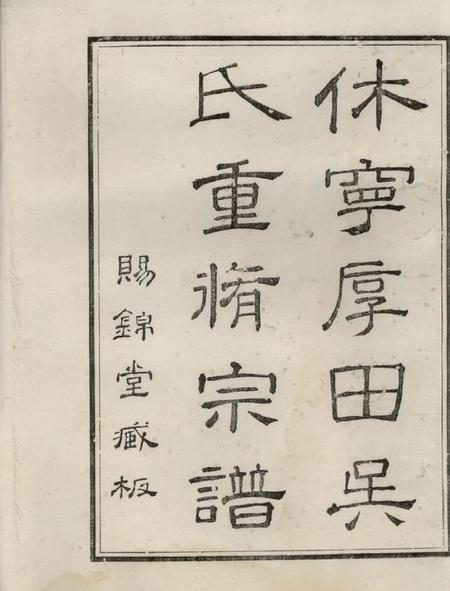 休寧厚田吳
氏重脩宗譜
賜錦堂藏板